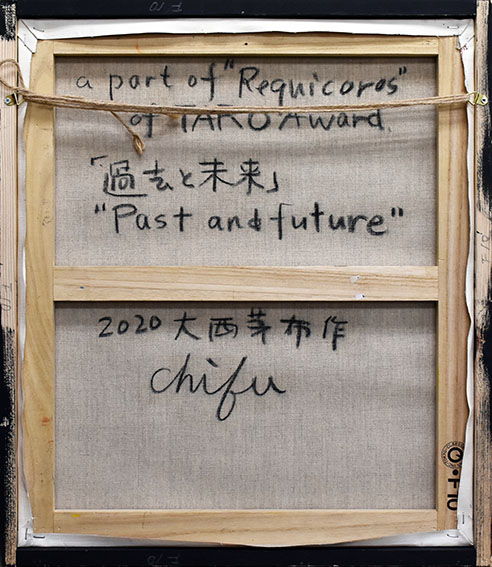 a part of "Requicoros"
of TARO Award.
「過去と未来」
"Past and future"
2020 大西茅布作
chifu
F10